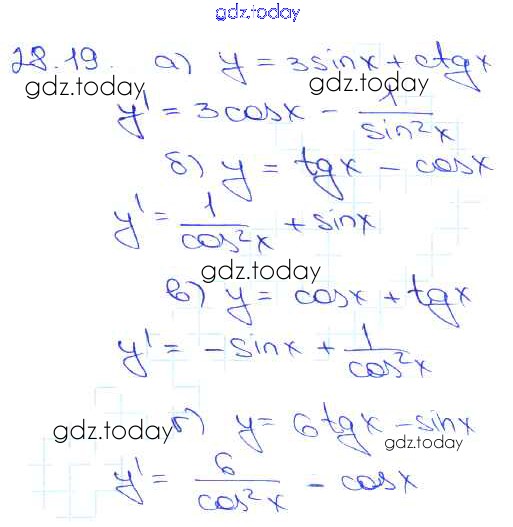 gdz.today
28.19. а) y = 3sinx + ctgx
gdz.today
y' = 3cosx - 1/sin²x
б) y = tgx - cosx
y' = 1/cos²x + sinx
gdz.today
в) y = cosx + tgx
y' = -sinx + 1/cos²x
г) y = 6tgx - sinx
gdz.today
gdz.today
y' = 6/cos²x - cosx